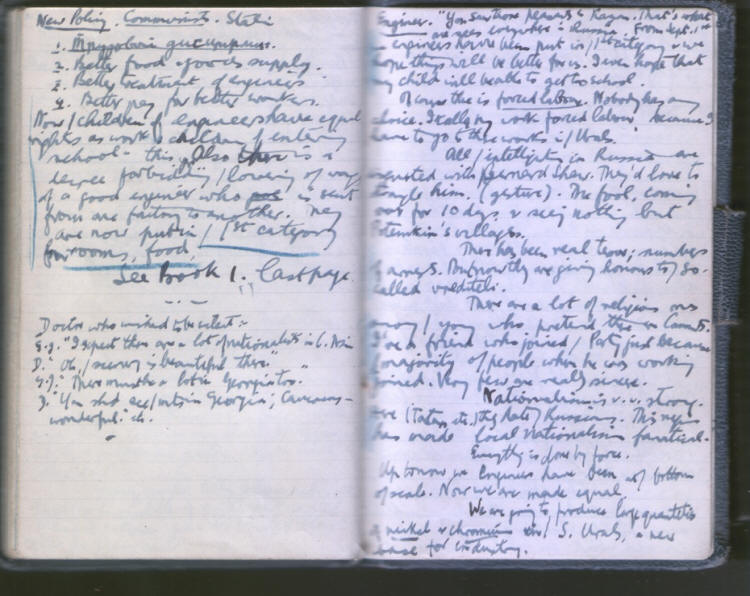 New Policy. Communists. Stalin
1. Трудовая дисциплина.
2. Better food & goods supply.
3. Better treatment of engineers
4. Better pay for better workers.
Now / children of engineers have equal
rights as work. children of entering
school this. Also there is a
decree forbidding / lowering of wages
of a good engineer who is sent
from one factory to another. They
are now put in / 1st category
for rooms, food.
See Book 1. Last page.
Doctor who wished to be silent:-
G.J. "I expect there are a lot of nationalists in C. Asia
D. Oh, / scenery is beautiful there."
G.J. There must be a lot in Georgia too.
D. You shd see / mts in Georgia; Caucasus -
wonderful." etc.
Engineer. "You saw those peasants in Kazan. That's what
one sees everywhere in Russia. From Sept. 1st
engineers have been put in / 1st category & we
hope things will be better for us. I even hope that
my child will be able to get to school.
Of course this is forced labour. Nobody has any
choice. I call my work forced labour because I
have to go to the works in / Urals.
All / intelligentsia in Russia are
disgusted with Bernard Shaw. They'd love to
strangle him. (gesture). The fool, coming
over for 10 days & seeing nothing but
Potemkin's villages.
There has been real terror; numbers
of arrests. But now they are giving honours to / so-
called vrediteli.
There are a lot of religious ones
among / young who pretend they're Comts.
I've a friend who joined / Party just because
majority of people when he was working
joined. Very few are really sincere.
Nationalism is v. v. strong.
Here (Tatars, etc.) they hate / Russians. This regime
has made local nationalism fanatical.
Everything is done by force.
Up to now we Engineers have been at / bottom
of scale. Now we are made equal.
We are going to produce large quantities
of nickel & chromium in / S. Urals, a new
base for industry.